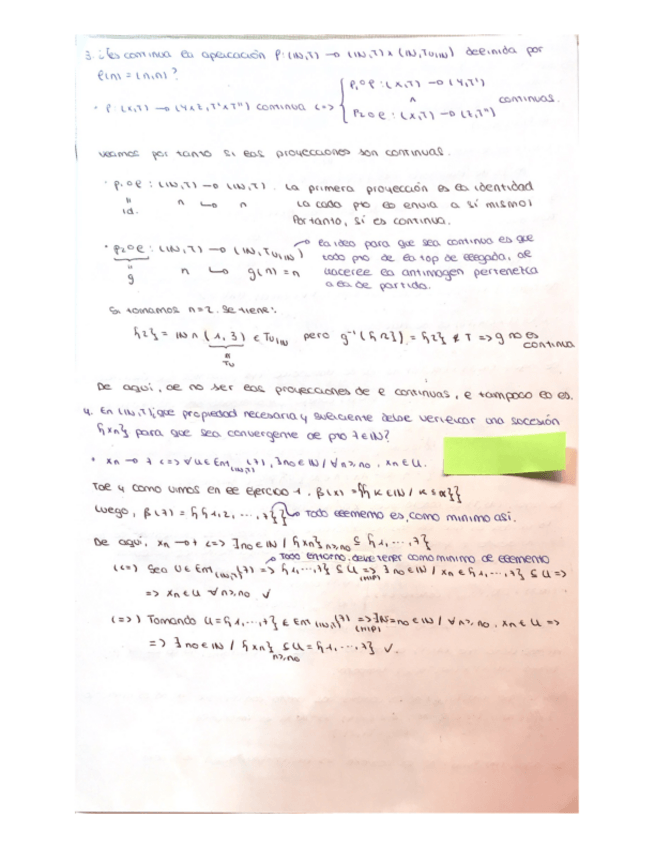 3. ¿Es continua la aplicación f: (ℕ,T) → (ℕ,T) x (ℕ,Tu|ℕ) definida por
f(n) = (n,n)?
· f: (X,T) → (YxZ, T'xT'') continua <=> { p₁∘f : (X,T) → (Y,T')
∧ continuas.
p₂∘f : (X,T) → (Z,T'')
Veamos por tanto si las proyecciones son continuas.
· p₁∘f : (ℕ,T) → (ℕ,T). La primera proyección es la identidad
id. n ↦ n (a cada pto lo envía a sí mismo)
Por tanto, sí es continua.
· p₂∘f : (ℕ,T) → (ℕ,Tu|ℕ) → La idea para que sea continua es que
g n ↦ g(n) = n todo pto de la top de llegada, al
hacerle la antiimagen pertenezca
a la de partida.
Si tomamos n=2. Se tiene:
{2} = ℕ ∩ (1,3) ∈ Tu|ℕ pero g⁻¹({2}) = {2} ∉ T => g no es
continua
Tu
De aquí, al no ser las proyecciones de f continuas, f tampoco lo es.
4. En (ℕ,T) ¿qué propiedad necesaria y suficiente debe verificar una sucesión
{xn} para que sea convergente al pto 7 ∈ ℕ?
· xn → 7 <=> ∀U ∈ Ent(ℕ,T)(7), ∃n₀ ∈ ℕ / ∀n ≥ n₀, xn ∈ U.
Tal y como vimos en el ejercicio 1. β(x) = {{K ∈ ℕ / K ≤ x}}
Luego, β(7) = {{1,2, ..., 7}} → Todo elemento es, como mínimo así.
De aquí, xn → 7 <=> ∃n₀ ∈ ℕ / {xn}n≥n₀ ⊆ {1, ..., 7}
→ Todo entorno debe tener como mínimo al elemento
(<=) Sea U ∈ Ent(ℕ,T)(7) => {1, ..., 7} ⊆ U => (HIP) ∃n₀ ∈ ℕ / xn ∈ {1, ..., 7} ⊆ U =>
=> xn ∈ U ∀n ≥ n₀ ✓
(=>) Tomando U = {1, ..., 7} ∈ Ent(ℕ,T)(7) => (HIP) ∃N=n₀ ∈ ℕ / ∀n ≥ n₀, xn ∈ U =>
=> ∃n₀ ∈ ℕ / {xn}n≥n₀ ⊆ U = {1, ..., 7} ✓.